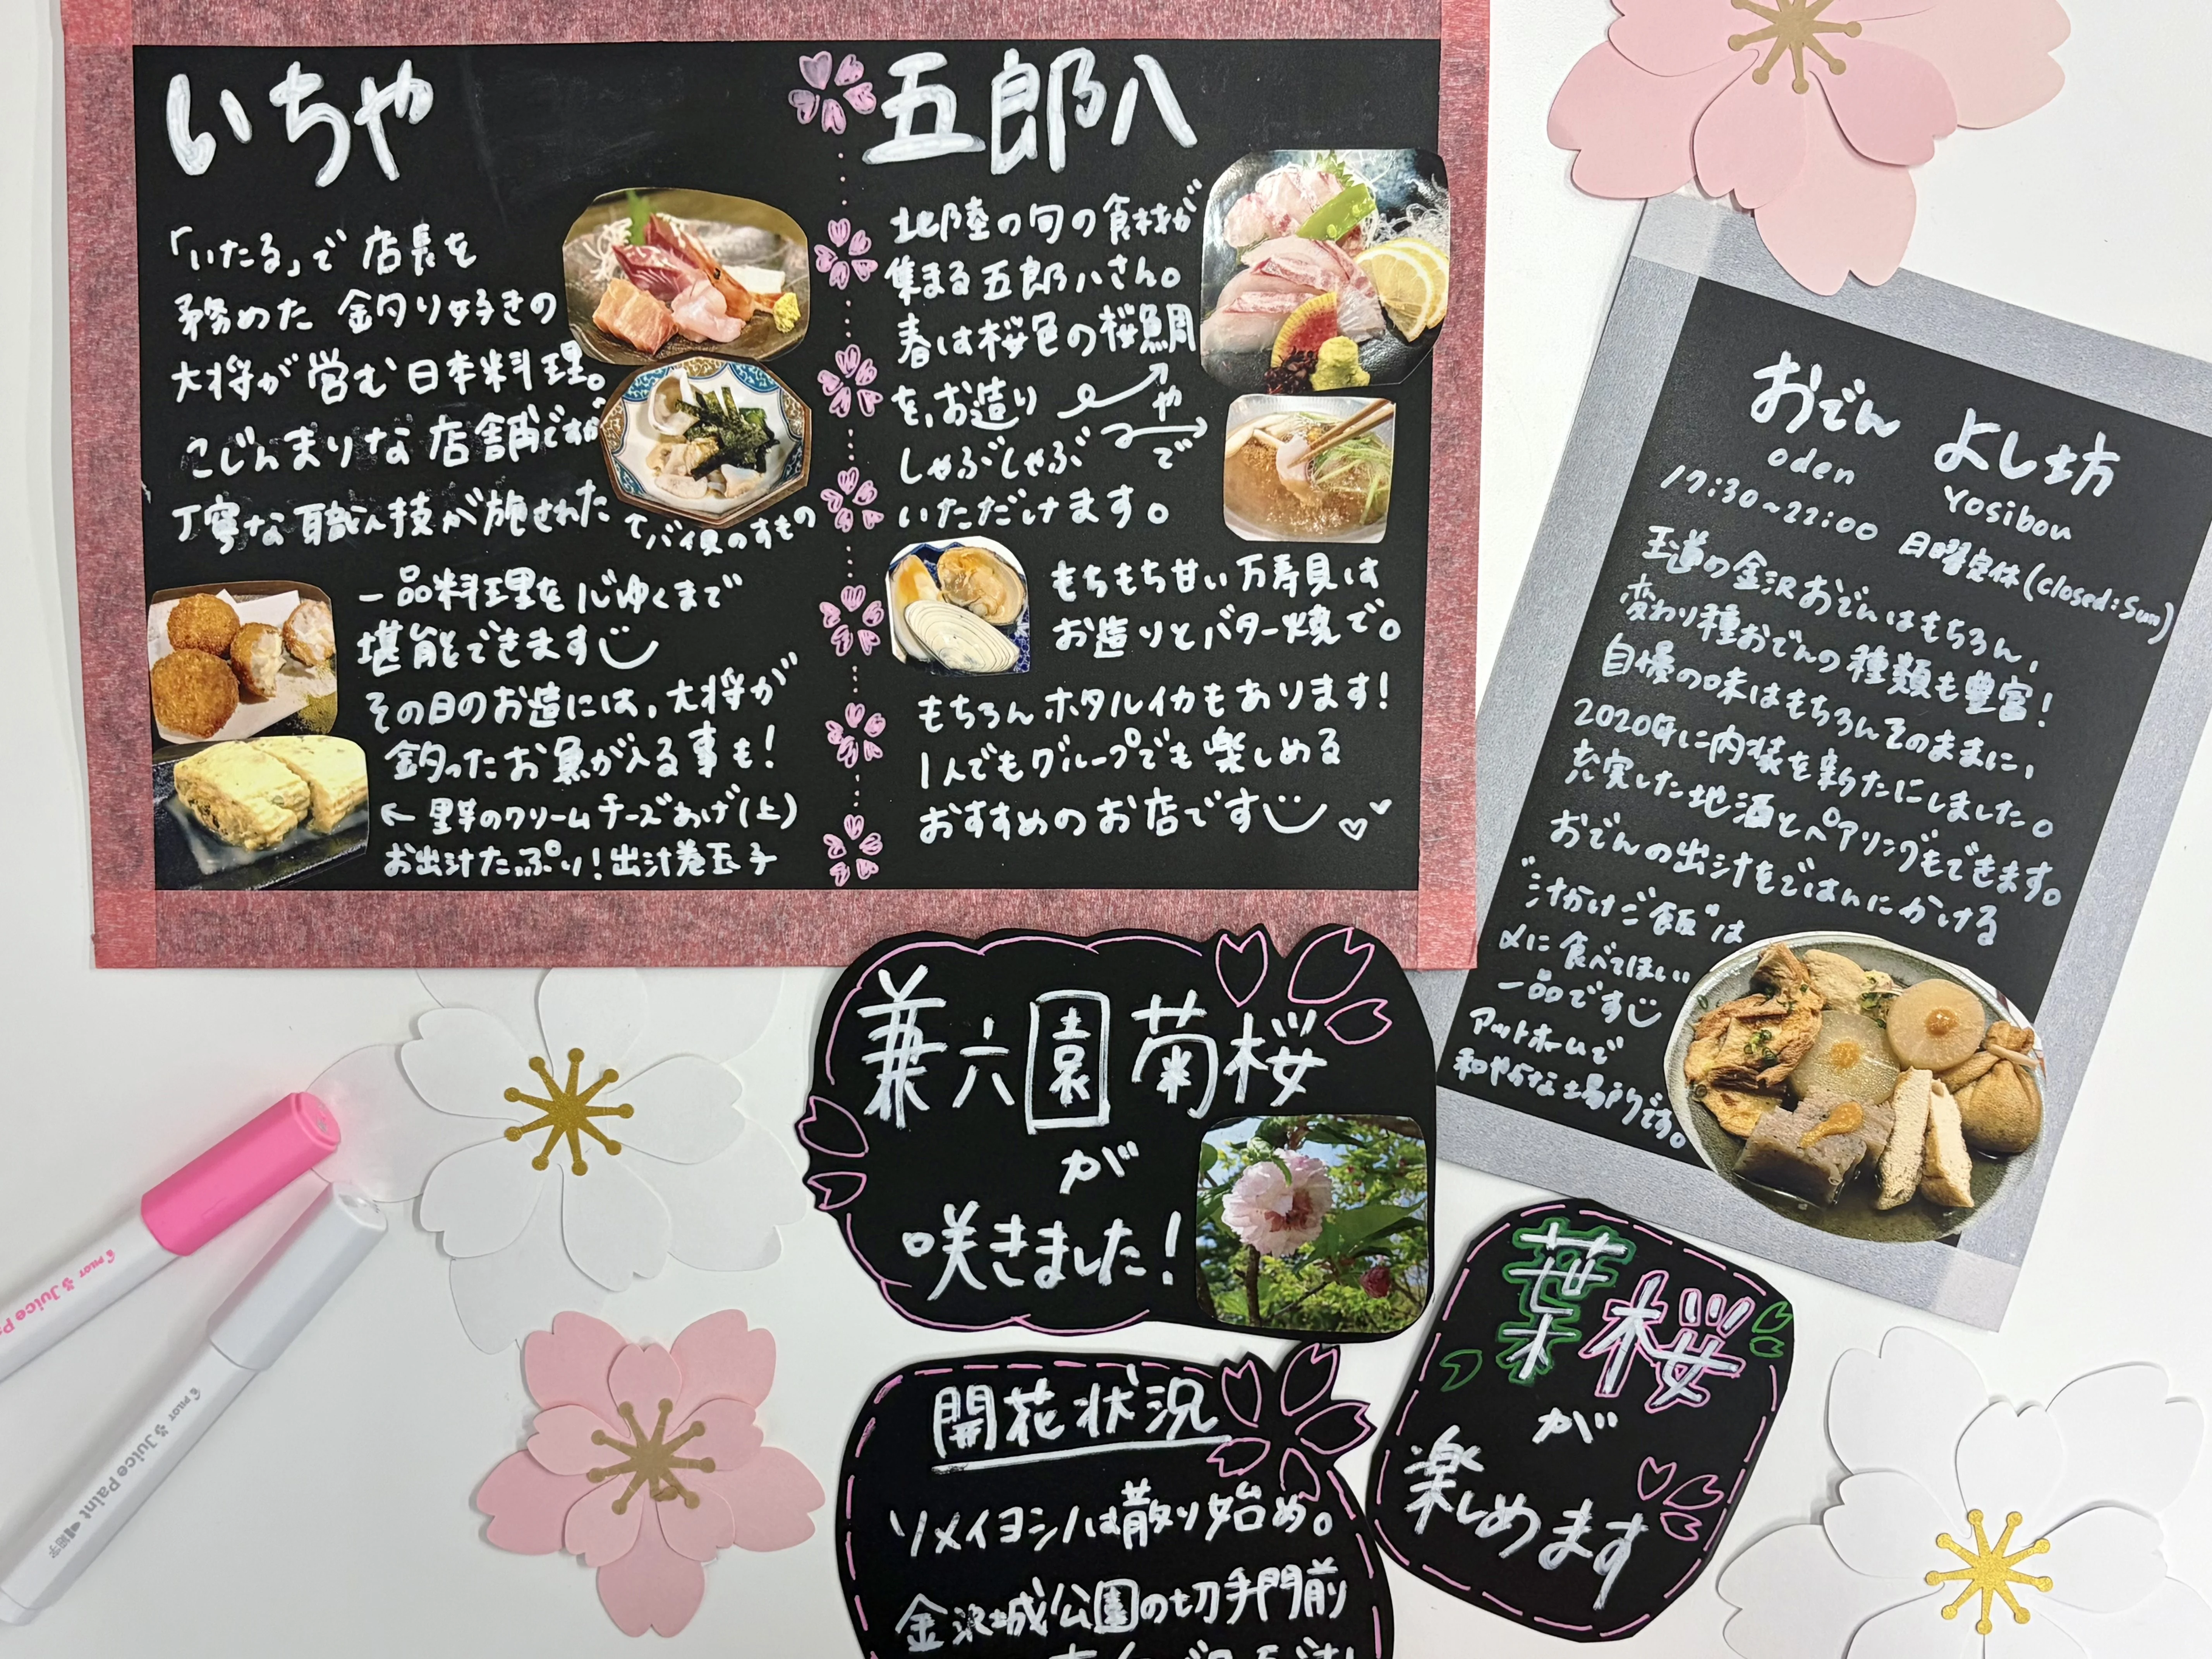 いちや
「いたる」で店長を
務めた 釣り好きの
大将が営む日本料理。
こじんまりな店舗ですが
丁寧な職人技が施された
てバイ貝のすもの
一品料理を心ゆくまで
堪能できます
その日のお造には、大将が
釣ったお魚が入る事も!
←里芋のクリームチーズあげ(上)
お出汁たっぷり!出汁巻玉子
五郎八
北陸の旬の食材が
集まる五郎八さん。
春は桜色の桜鯛
を、お造り や
しゃぶしゃぶ で
いただけます。
もちもち甘い万寿貝は
お造りとバター焼で。
もちろんホタルイカもあります!
1人でもグループでも楽しめる
おすすめのお店です
おでん よし坊
oden Yosibou
17:30~22:00 日曜定休(closed:Sun)
王道の金沢おでんはもちろん、
変わり種おでんの種類も豊富!
自慢の味はもちろんそのままに、
2020年に内装を新たにしました。
充実した地酒とペアリングもできます。
おでんの出汁をごはんにかける
"汁かけご飯"は
〆に食べてほしい
一品です
アットホームで
和やかな場所です。
兼六園菊桜
が
咲きました!
葉桜
が
楽しめます
開花状況
ソメイヨシノは散り始め。
金沢城公園の切手門前
PILOT Juice Pa
PILOT Juice Paint 細字